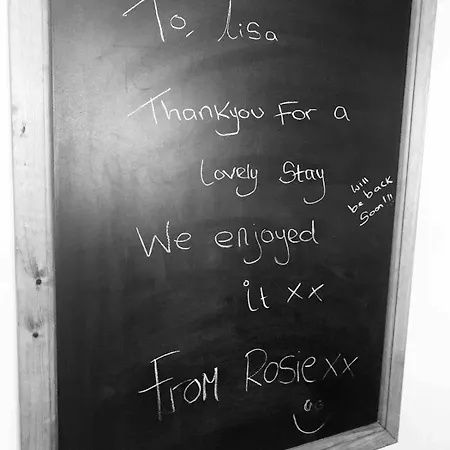 To, Lisa
Thankyou For a
Lovely Stay
Will
be back
Soon!!!
We enjoyed
it xx
From Rosie xx